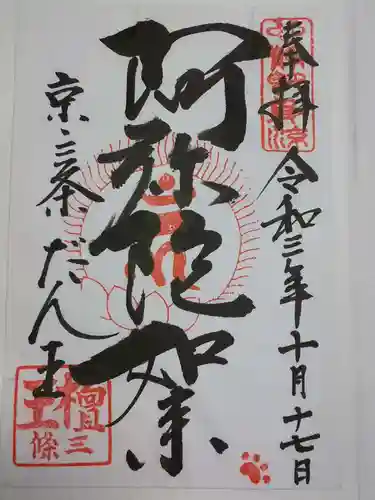 奉拝
令和三年十月十七日
阿弥陀如来
京・三条だん王
檀王
三條